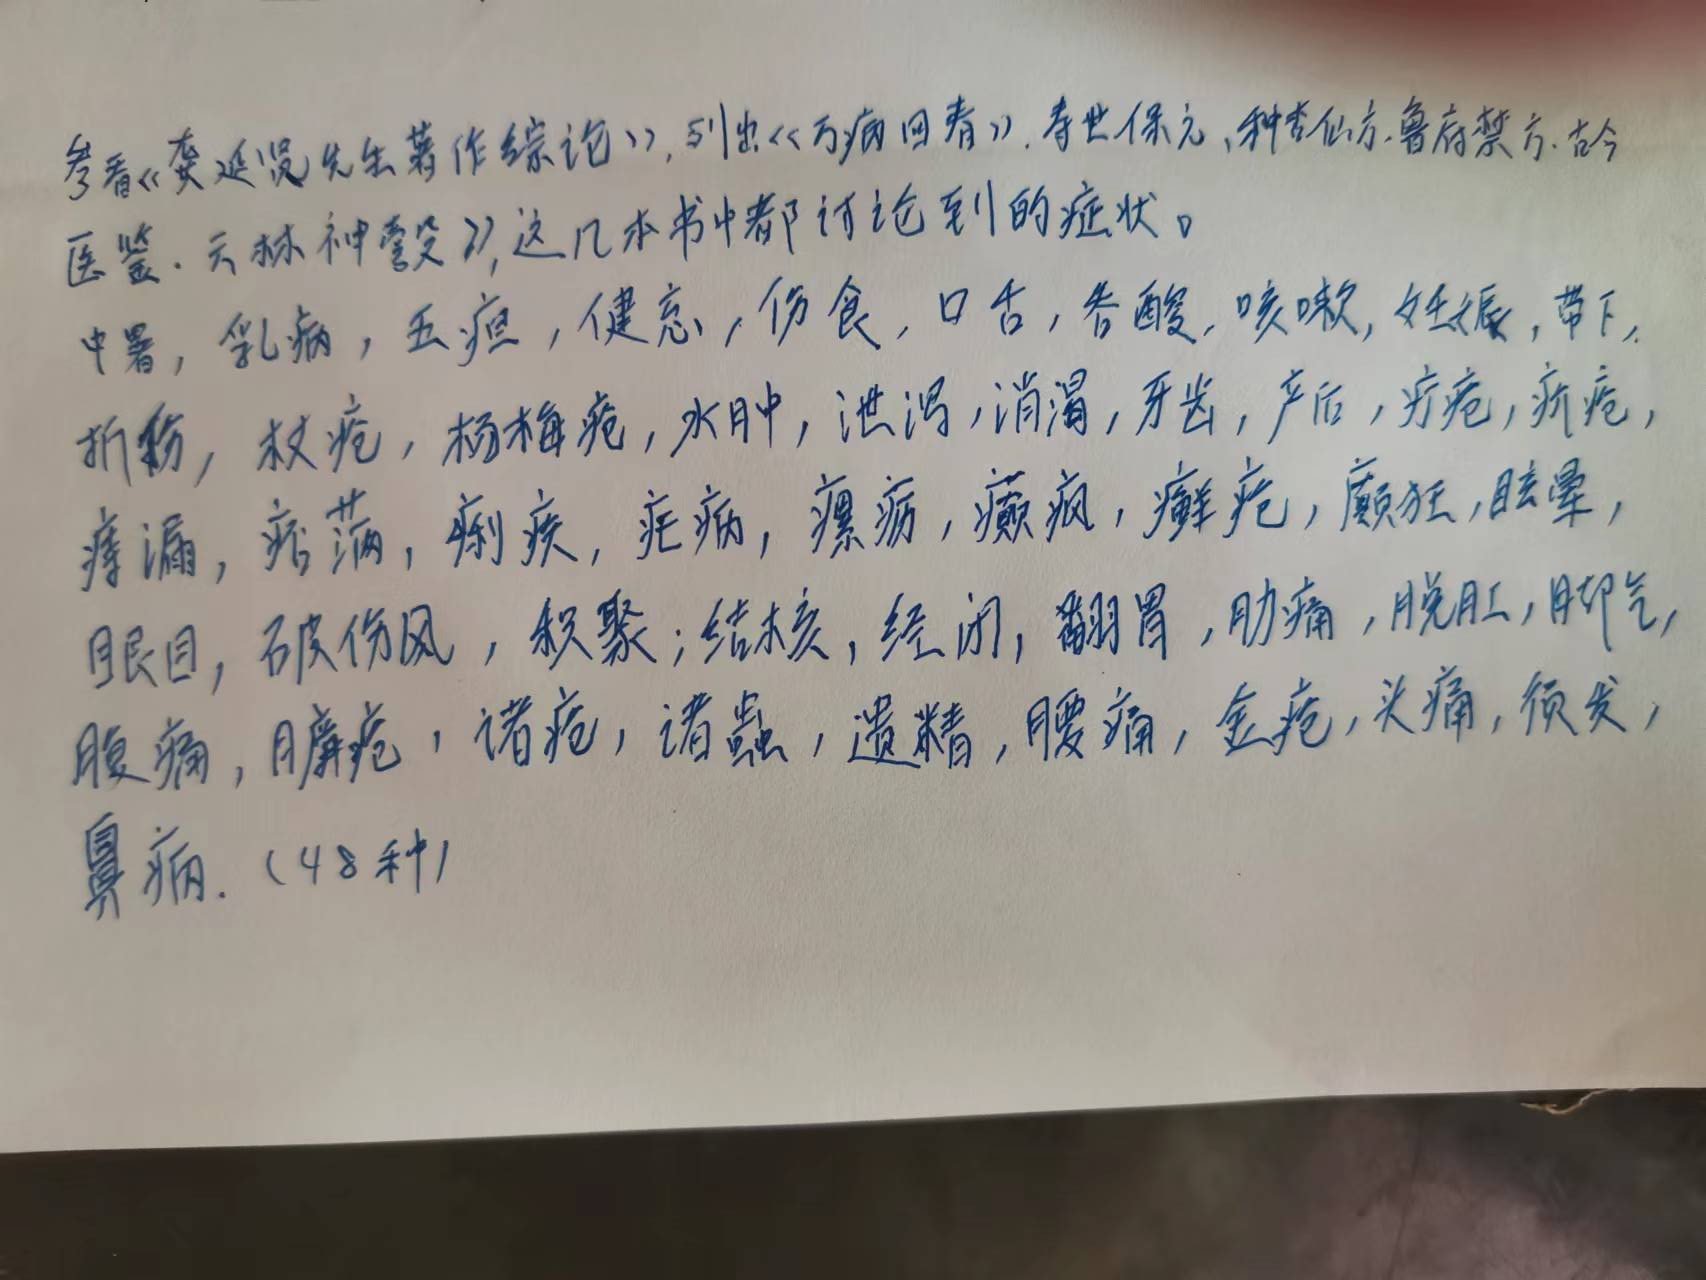 参看《龚廷贤先生著作综论》，列出《万病回春》.寿世保元、种杏仙方.鲁府禁方.古今
医鉴.云林神彀》，这几本书中都讨论到的症状。
中暑，乳病，五疸，健忘，伤食，口舌，吞酸，咳嗽，妊娠，带下，
折伤，杖疮，杨梅疮，水肿，泄泻，消渴，牙齿，产后，疔疮，疥疮，
痔漏，痞满，痢疾，疟病，瘰疬，癫疯，癣疮，癫狂，眩晕，
眼目，破伤风，积聚；结核，经闭，翻胃，肋痛，脱肛，脚气，
腹痛，臁疮，诸疮，诸蟲，遗精，腰痛，金疮，头痛，须发，
鼻病.（48种）